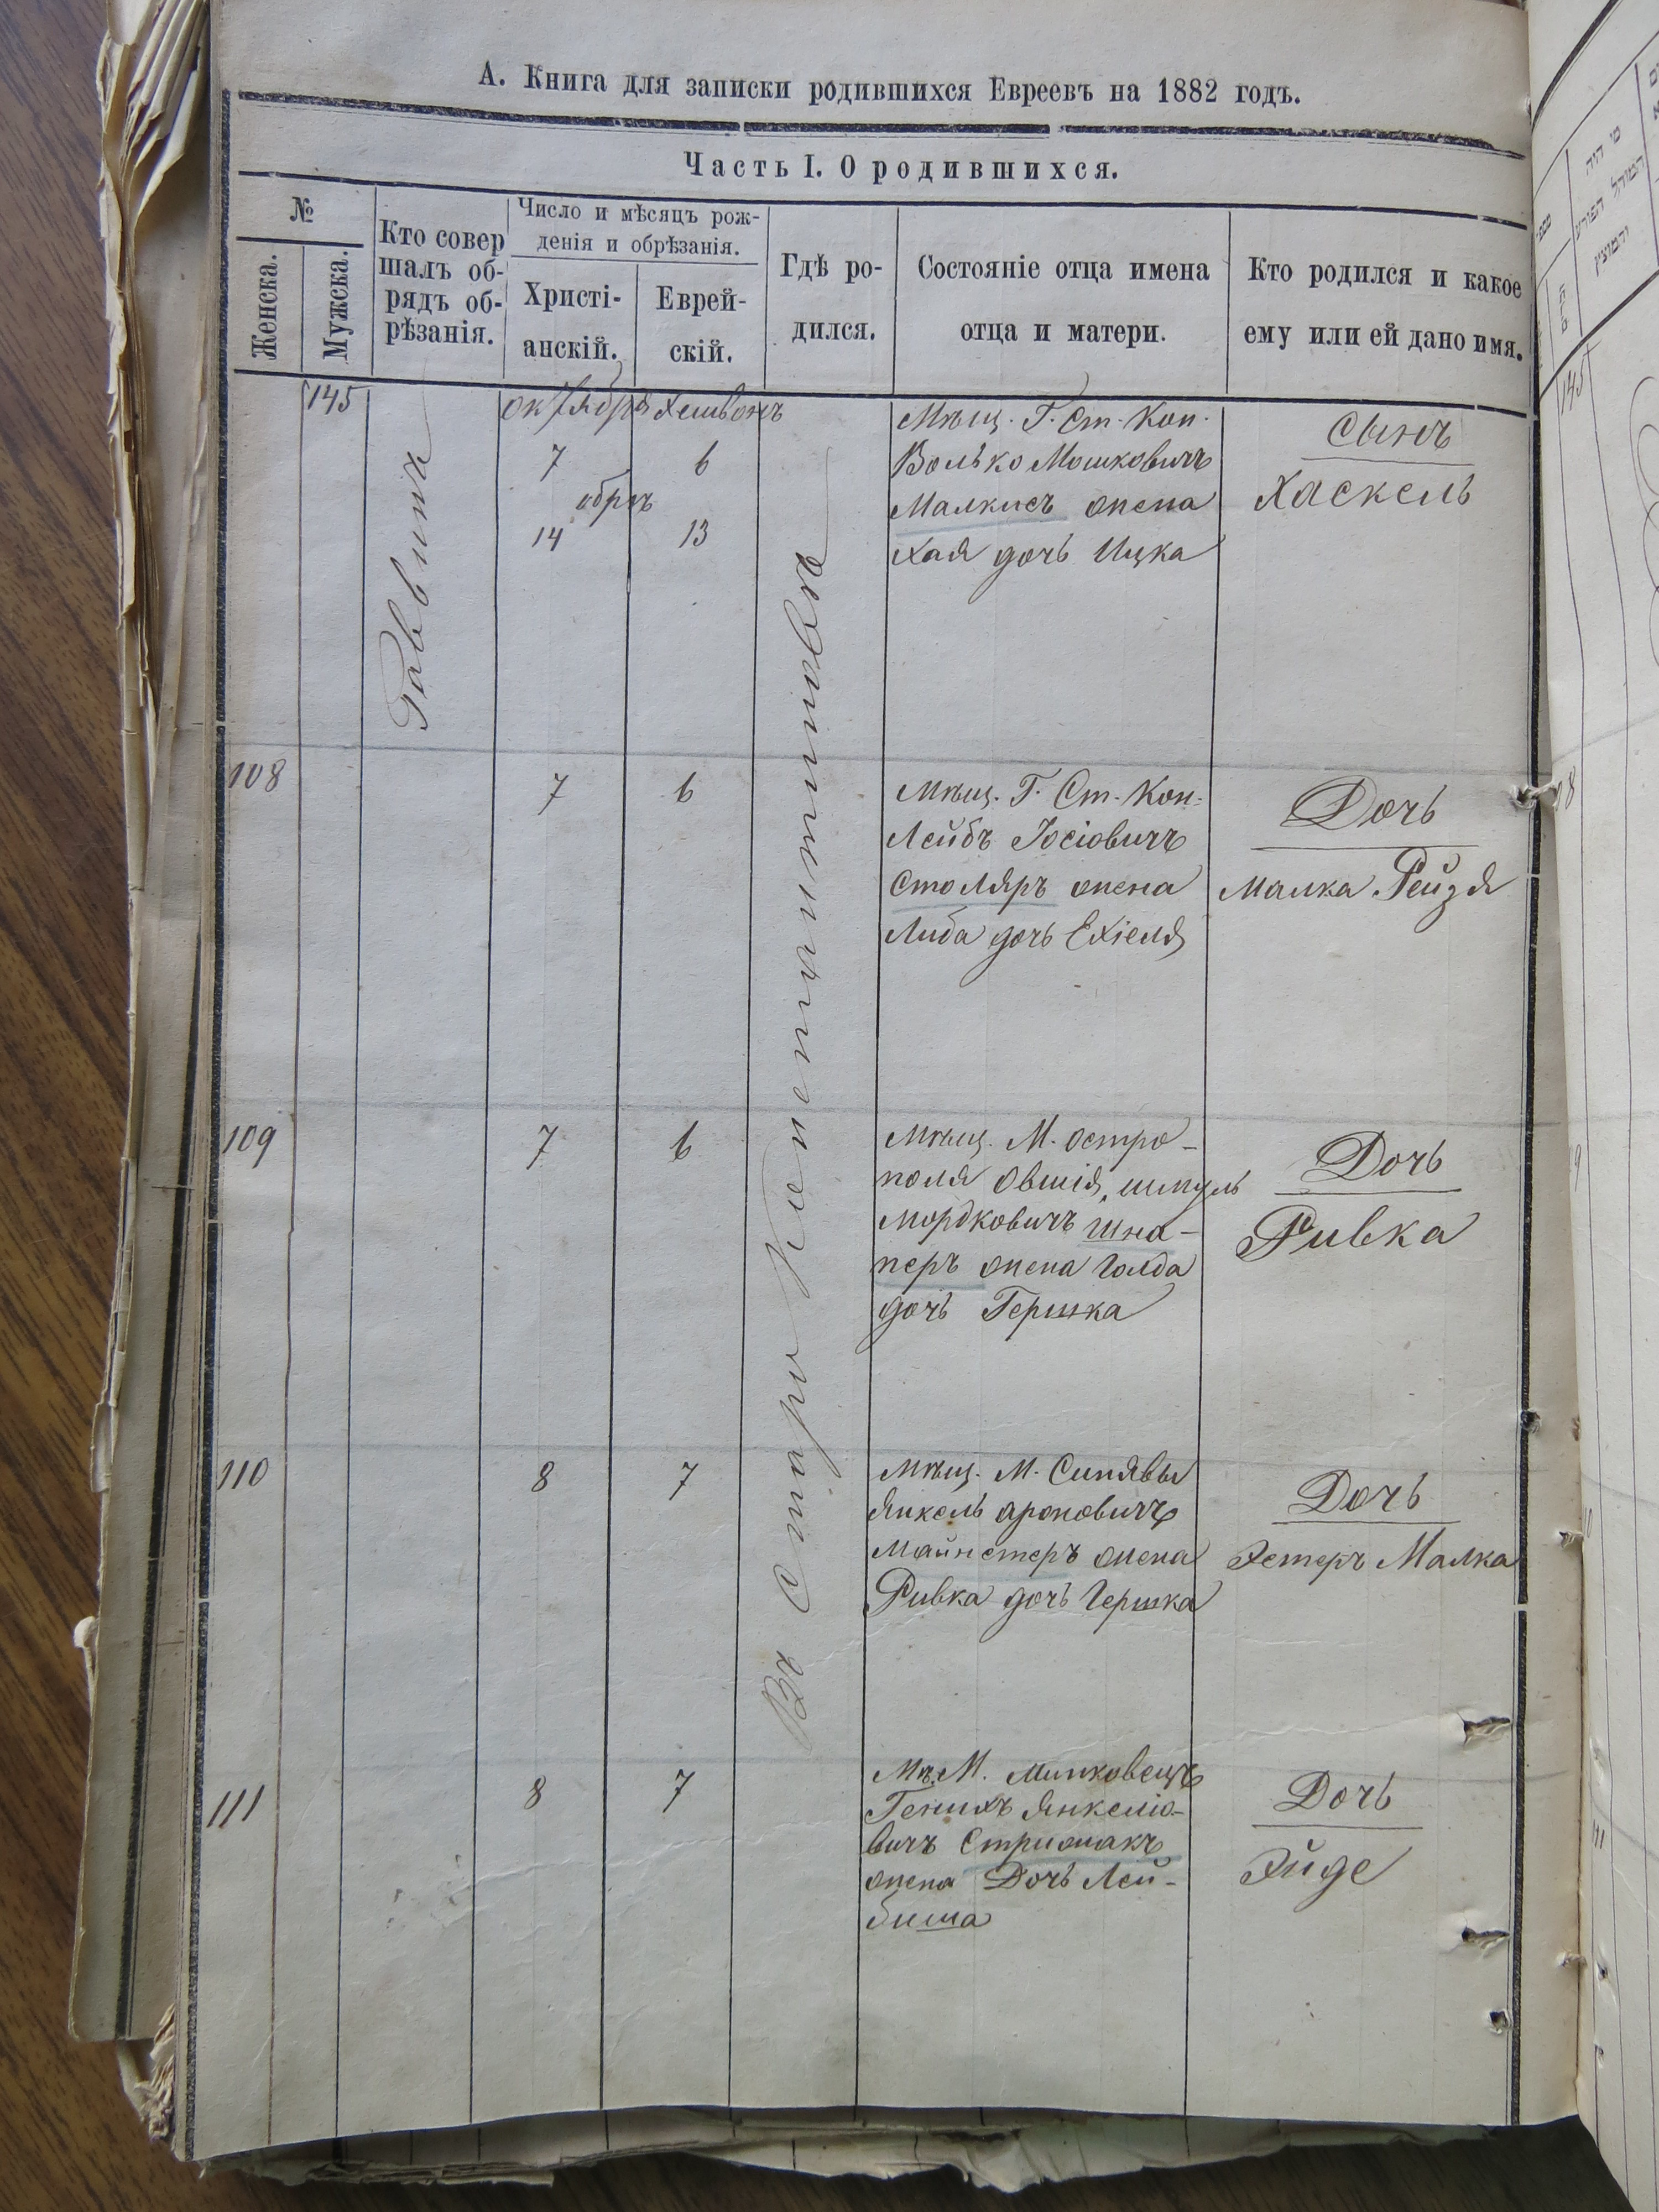 А. Книга для записки родившихся Евреевъ на 1882 годъ.
Часть I. О родившихся.
№
Женска.
Мужска.
Кто совер
шалъ об-
рядъ об-
рѣзанія.
Число и мѣсяцъ рож-
денія и обрѣзанія.
Христі-
анскій.
Еврей-
скій.
Гдѣ ро-
дился.
Состояніе отца имена
отца и матери.
Кто родился и какое
ему или ей дано имя.
145
Раввинъ
октября Хешвонъ
7 6
обрѣз
14 13
Въ Старо Константиновѣ
Мѣщ. Г. Ст. Кон.
Волько Мошковичъ
Малкисъ жена
Хая дочь Ицка
Сынъ
Хаскель
108
7 6
Мѣщ. Г. Ст. Кон.
Лейбъ Іосіовичъ
Столяръ жена
Либа дочь Ехіеля
Дочь
Малка Рейзя
109
7 6
Мѣщ. М. Остро-
поля Овшія, шмуль
Мордковичъ Шна-
перъ жена Голда
дочь Гершка
Дочь
Ривка
110
8 7
Мѣщ. М. Синявы
Янкель ароновичъ
Майнстеръ жена
Ривка дочь Гершка
Дочь
Эстеръ Малка
111
8 7
Мѣ. М. Минковецъ
Генихъ Янкеліо-
вичъ Стрижакъ
жена Дочь Лей-
биша
Дочь
Эйде
145